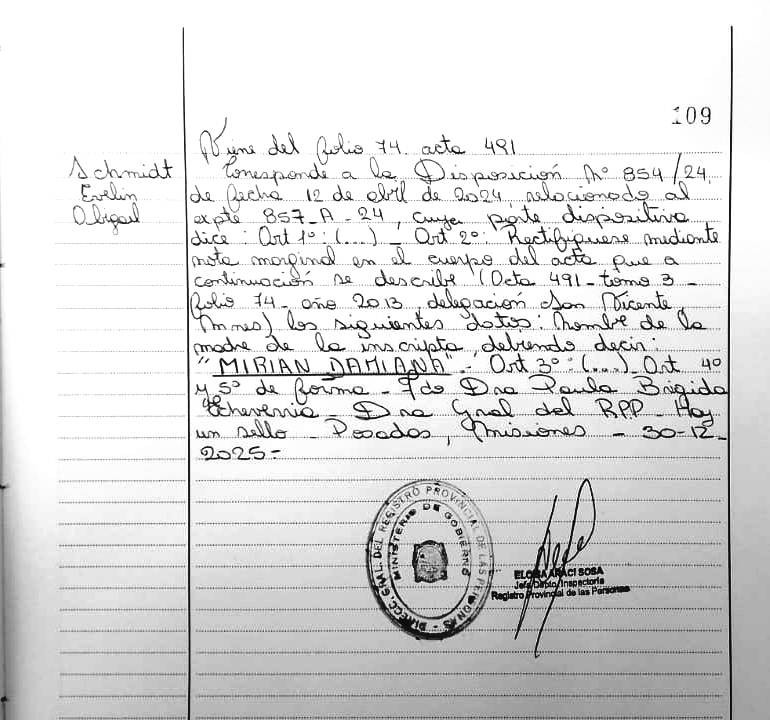 109
Viene del folio 74. acta 491
Schmidt
Evelin
Abigail
Corresponde a la Disposición Nº 854/24
de fecha 12 de abril de 2024, relacionado al
expte 857-A-24, cuya parte dispositiva
dice: Art 1º: (...) _ Art 2º: Rectifiquese mediante
nota marginal en el cuerpo del acta que a
continuación se describe (Acta 491 - tomo 3 -
folio 74 - año 2013, delegación San Vicente,
Mnes) los siguientes datos: Nombre de la
madre de la inscripta, debiendo decir:
"MIRIAN DAMIANA" - Art 3º: (...) Art 4º
y 5º de forma - Fdo Dra Paula Brigida
Echeverria - Dra Gral del RPP - Hay
un sello - Posadas, Misiones - 30-12-
2025 -
DIRECC. GRAL. DEL REGISTRO PROVINCIAL DE LAS PERSONAS -
MINISTERIO DE GOBIERNO
ELOISA ARACI SOSA
Jefa Dpto. Inspectoría
Registro Provincial de las Personas